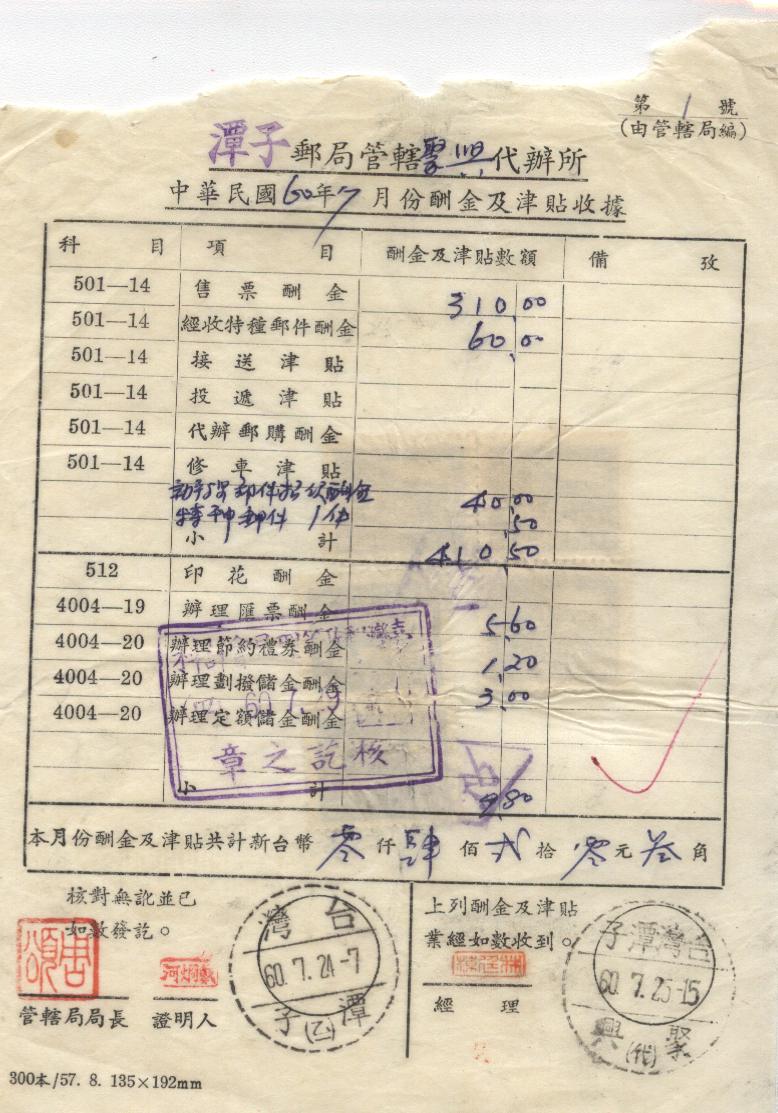 第 1 號
(由管轄局編)
潭子郵局管轄聚興代辦所
中華民國60年7月份酬金及津貼收據
科目 項目 酬金及津貼數額 備攷
501—14 售票酬金 310.00
501—14 經收特種郵件酬金 60.00
501—14 接送津貼
501—14 投遞津貼
501—14 代辦郵購酬金
501—14 修車津貼
郵件 酬金 40.00
特種郵件 1件 .50
小計 410.50
512 印花酬金
4004—19 辦理匯票酬金 5.60
4004—20 辦理節約禮券酬金 1.20
4004—20 辦理劃撥儲金酬金 3.00
4004—20 辦理定額儲金酬金
章之訖核
小計 9.80
本月份酬金及津貼共計新台幣零仟肆佰弍拾零元叁角
核對無訛並已
如數發訖。
唐頌
管轄局局長 證明人
台灣
60.7.24-7
潭子
(乙)
上列酬金及津貼
業經如數收到。
經理
台灣潭子
60.7.25-15
聚興
(代)
300本/57. 8. 135×192mm